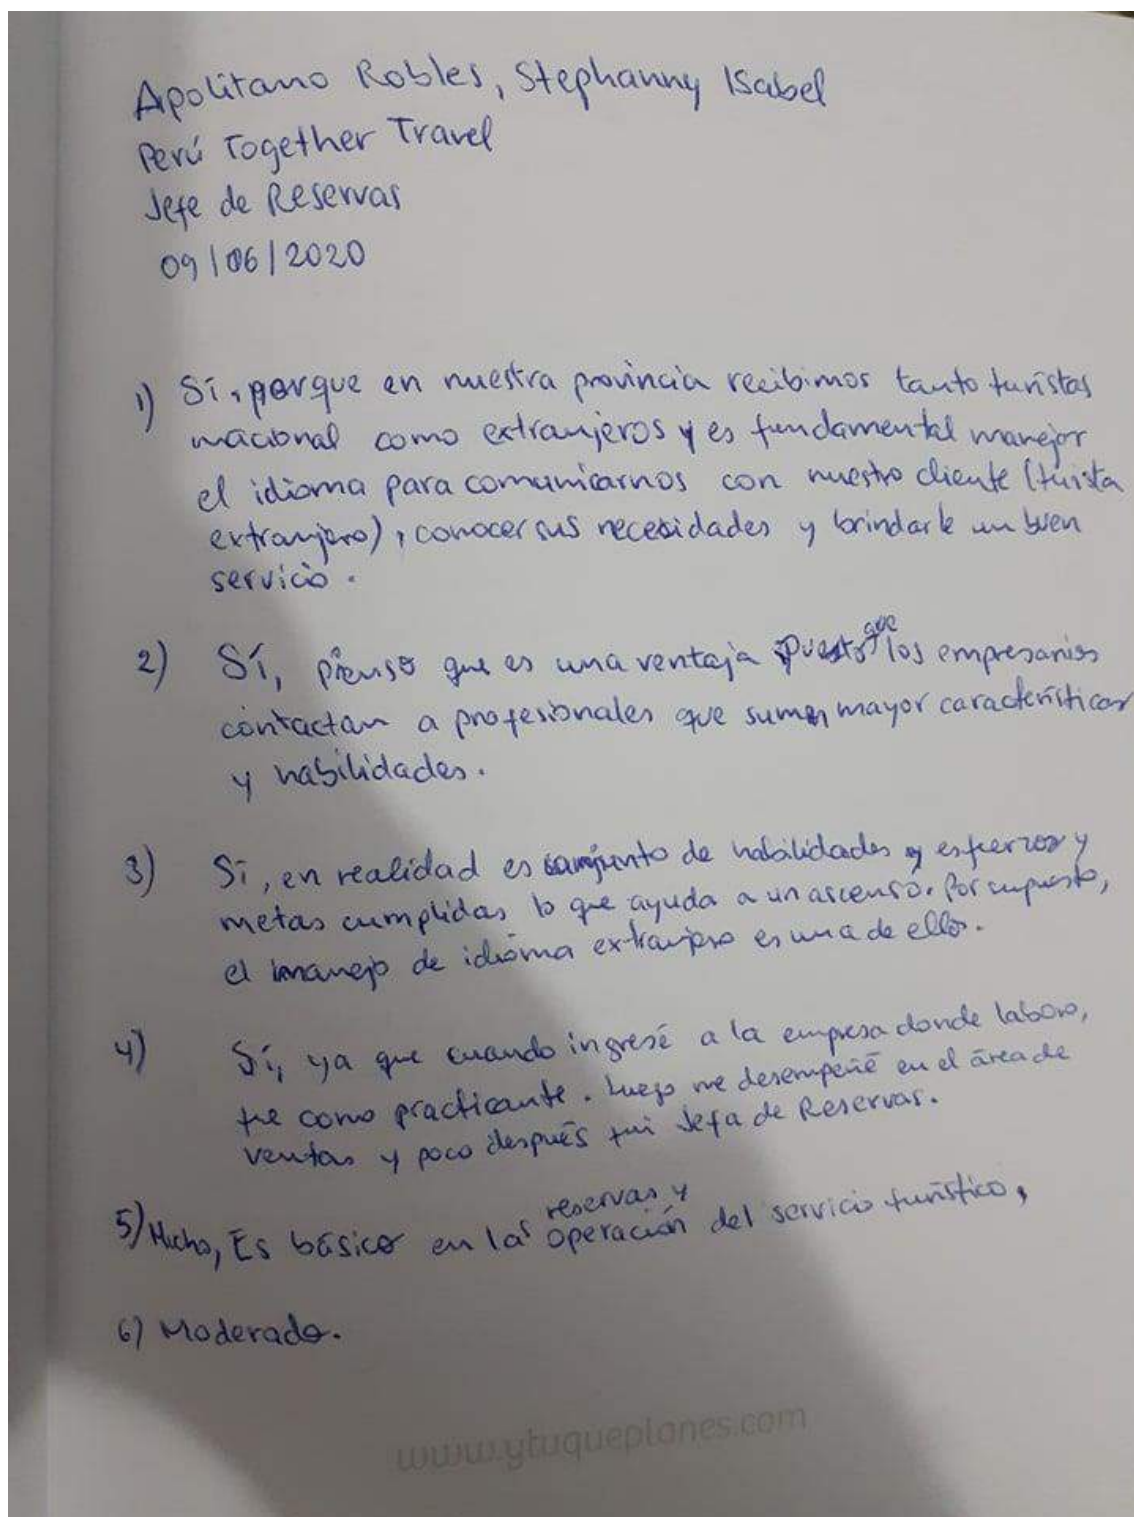 Apolitano Robles, Stephanny Isabel
Perú Together Travel
Jefe de Reservas
09/06/2020
1) Sí, porque en nuestra provincia recibimos tanto turistas
nacional como extranjeros y es fundamental manejar
el idioma para comunicarnos con nuestro cliente (turista
extranjero), conocer sus necesidades y brindarle un buen
servicio.
2) Sí, pienso que es una ventaja puesto que los empresarios
contactan a profesionales que sumen mayor características
y habilidades.
3) Sí, en realidad es conjunto de habilidades y esfuerzos y
metas cumplidas lo que ayuda a un ascenso. Por supuesto,
el manejo de idioma extranjero es una de ellos.
4) Sí, ya que cuando ingresé a la empresa donde laboro,
fue como practicante. Luego me desempeñé en el área de
ventas y poco después fui Jefa de Reservas.
5) Mucho, Es básico en las reservas y operación del servicio turístico,
6) Moderado.
www.ytuqueplanes.com